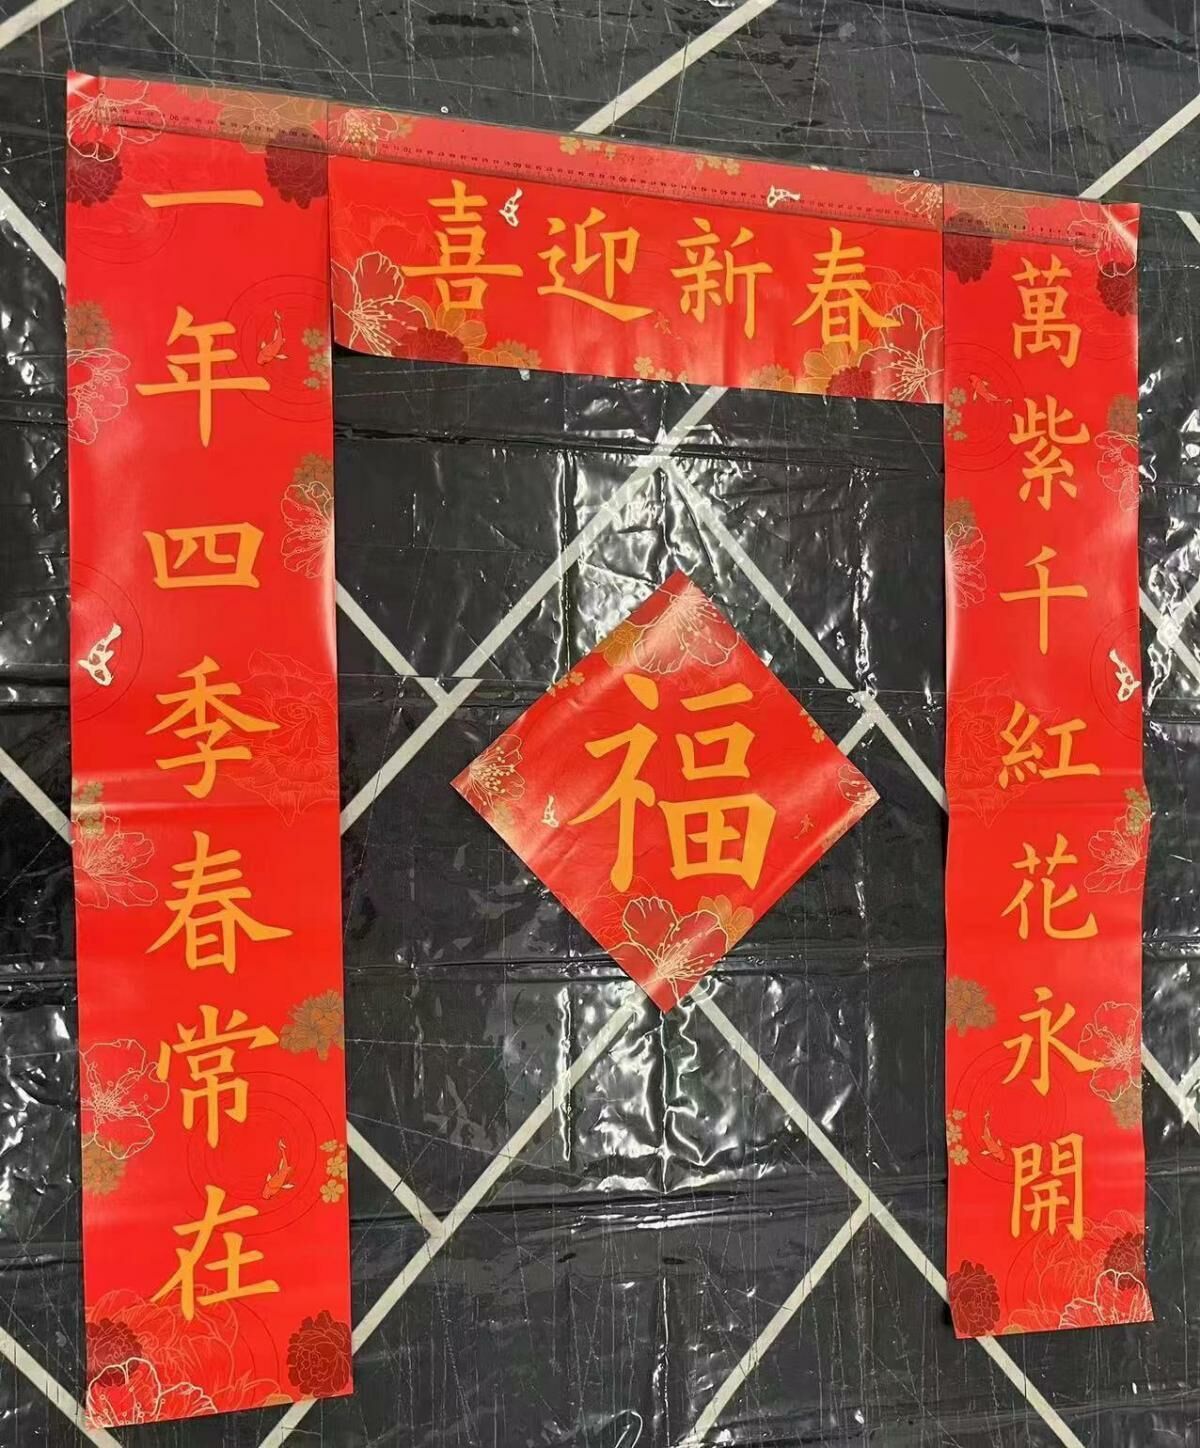 喜迎新春
一年四季春常在
萬紫千紅花永開
福